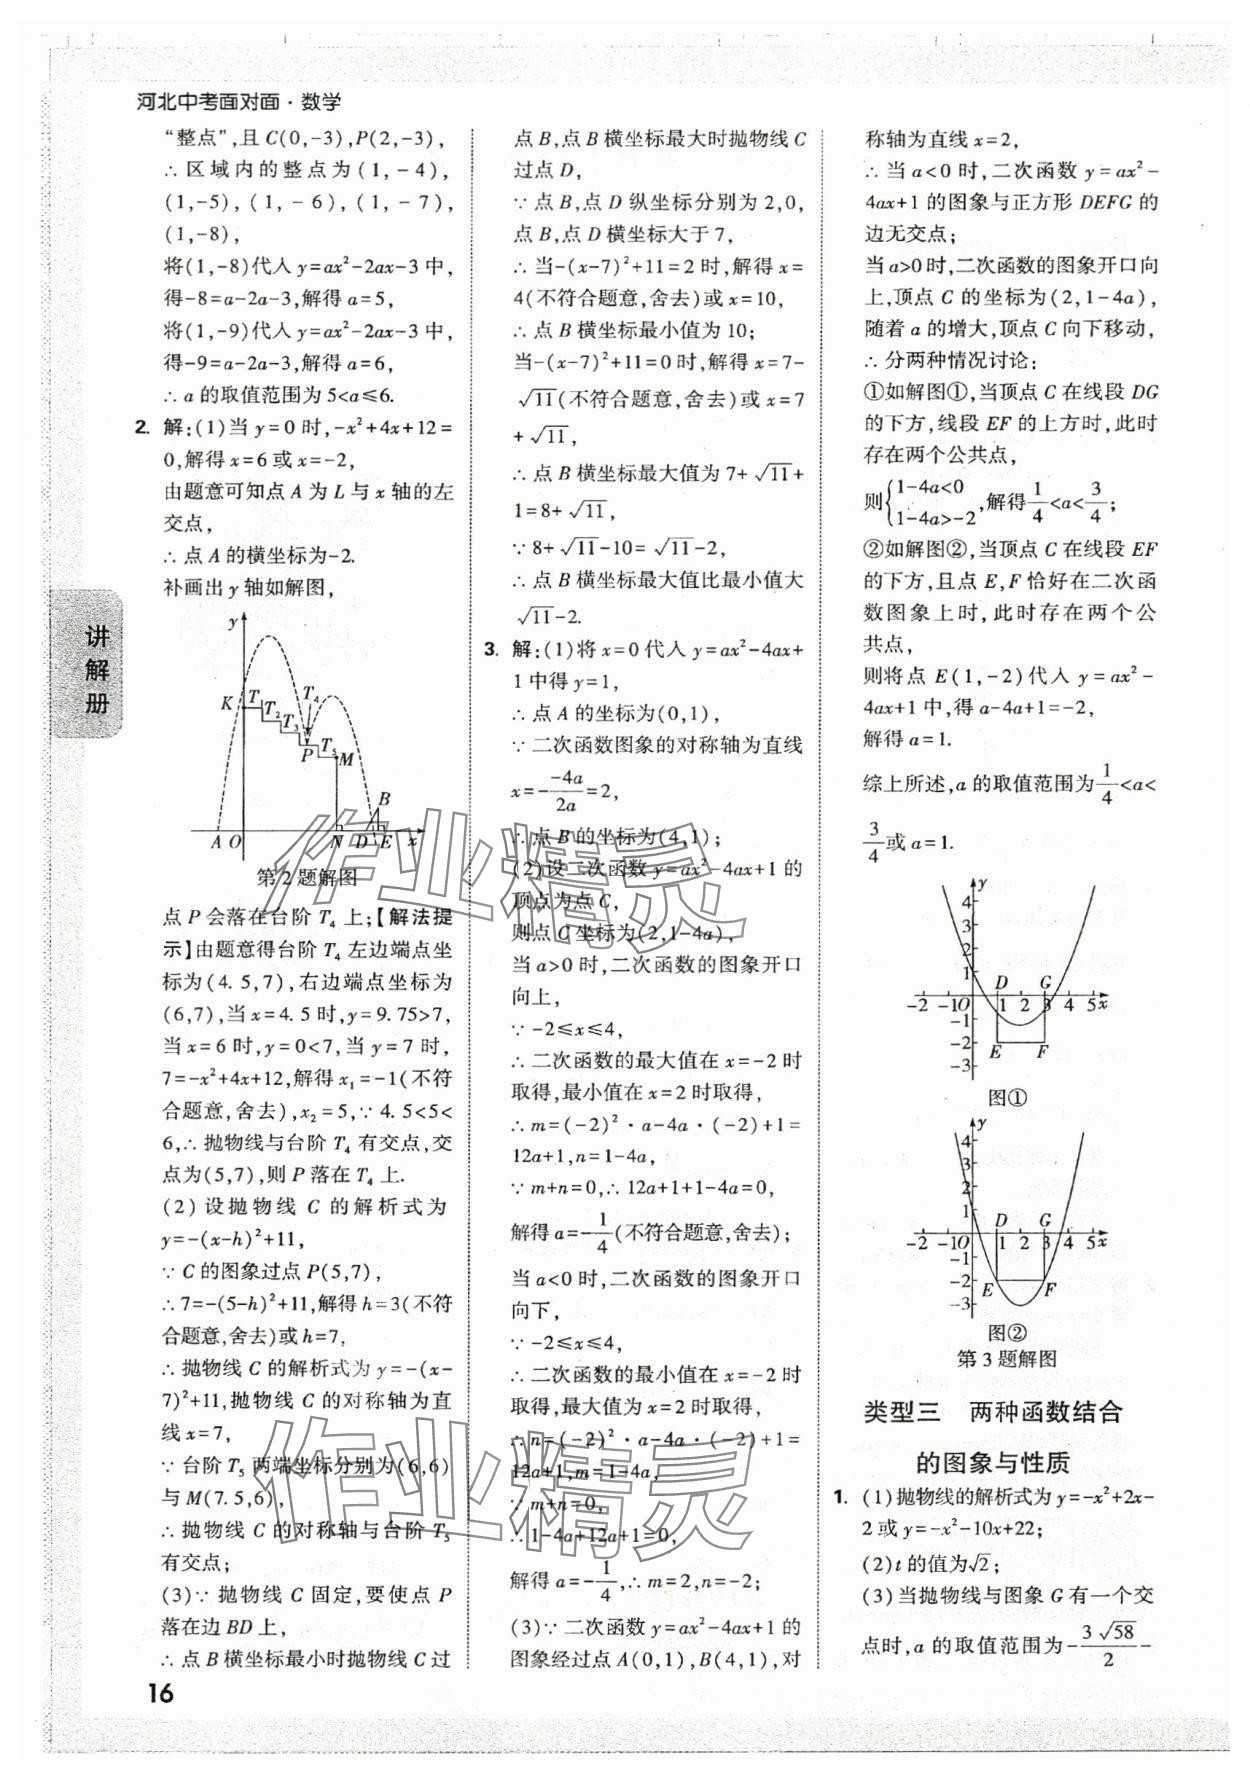 河北中考面对面·数学
“整点”,且 C(0,-3),P(2,-3),
∴区域内的整点为(1,-4),
(1,-5),(1,-6),(1,-7),
(1,-8),
将(1,-8)代入 y=ax²-2ax-3 中,
得-8=a-2a-3,解得 a=5,
将(1,-9)代入 y=ax²-2ax-3 中,
得-9=a-2a-3,解得 a=6,
∴a 的取值范围为 5<a≤6.
2. 解:(1)当 y=0 时,-x²+4x+12=
0,解得 x=6 或 x=-2,
由题意可知点 A 为 L 与 x 轴的左
交点,
∴点 A 的横坐标为-2.
补画出 y 轴如解图,
y
K T₁ T₂ T₃ T₄
P T₅ M
B
A O N D E x
第 2 题解图
点 P 会落在台阶 T₄ 上;【解法提
示】由题意得台阶 T₄ 左边端点坐
标为(4.5,7),右边端点坐标为
(6,7),当 x=4.5 时,y=9.75>7,
当 x=6 时,y=0<7,当 y=7 时,
7=-x²+4x+12,解得 x₁=-1(不符
合题意,舍去),x₂=5,∵4.5<5<
6,∴抛物线与台阶 T₄ 有交点,交
点为(5,7),则 P 落在 T₄ 上.
(2)设抛物线 C 的解析式为
y=-(x-h)²+11,
∵C 的图象过点 P(5,7),
∴7=-(5-h)²+11,解得 h=3(不符
合题意,舍去)或 h=7,
∴抛物线 C 的解析式为 y=-(x-
7)²+11,抛物线 C 的对称轴为直
线 x=7,
∵台阶 T₅ 两端坐标分别为(6,6)
与 M(7.5,6),
∴抛物线 C 的对称轴与台阶 T₅
有交点;
(3)∵抛物线 C 固定,要使点 P
落在边 BD 上,
∴点 B 横坐标最小时抛物线 C 过
点 B,点 B 横坐标最大时抛物线 C
过点 D,
∵点 B,点 D 纵坐标分别为 2,0,
点 B,点 D 横坐标大于 7,
∴当-(x-7)²+11=2 时,解得 x=
4(不符合题意,舍去)或 x=10,
∴点 B 横坐标最小值为 10;
当-(x-7)²+11=0 时,解得 x=7-
√11(不符合题意,舍去)或 x=7
+√11,
∴点 B 横坐标最大值为 7+√11+
1=8+√11,
∵8+√11-10=√11-2,
∴点 B 横坐标最大值比最小值大
√11-2.
3. 解:(1)将 x=0 代入 y=ax²-4ax+
1 中得 y=1,
∴点 A 的坐标为(0,1),
∵二次函数图象的对称轴为直线
x=-\frac{-4a}{2a}=2,
∴点 B 的坐标为(4,1);
(2)设二次函数 y=ax²-4ax+1 的
顶点为点 C,
则点 C 坐标为(2,1-4a),
当 a>0 时,二次函数的图象开口
向上,
∵-2≤x≤4,
∴二次函数的最大值在 x=-2 时
取得,最小值在 x=2 时取得,
∴m=(-2)²·a-4a·(-2)+1=
12a+1,n=1-4a,
∵m+n=0,∴12a+1+1-4a=0,
解得 a=-\frac{1}{4}(不符合题意,舍去);
当 a<0 时,二次函数的图象开口
向下,
∵-2≤x≤4,
∴二次函数的最小值在 x=-2 时
取得,最大值在 x=2 时取得,
∴n=(-2)²·a-4a·(-2)+1=
12a+1,m=1-4a,
∵m+n=0,
∴1-4a+12a+1=0,
解得 a=-\frac{1}{4},∴m=2,n=-2;
(3)∵二次函数 y=ax²-4ax+1 的
图象经过点 A(0,1),B(4,1),对
称轴为直线 x=2,
∴当 a<0 时,二次函数 y=ax²-
4ax+1 的图象与正方形 DEFG 的
边无交点;
当 a>0 时,二次函数的图象开口向
上,顶点 C 的坐标为(2,1-4a),
随着 a 的增大,顶点 C 向下移动,
∴分两种情况讨论:
①如解图①,当顶点 C 在线段 DG
的下方,线段 EF 的上方时,此时
存在两个公共点,
则{1-4a<0
1-4a>-2,解得\frac{1}{4}<a<\frac{3}{4};
②如解图②,当顶点 C 在线段 EF
的下方,且点 E,F 恰好在二次函
数图象上时,此时存在两个公
共点,
则将点 E(1,-2)代入 y=ax²-
4ax+1 中,得 a-4a+1=-2,
解得 a=1.
综上所述,a 的取值范围为\frac{1}{4}<a<
\frac{3}{4}或 a=1.
y
4
3
2
1
D G
-2 -1 O 1 2 3 4 5 x
-1
-2
E F
-3
图①
y
4
3
2
1
D G
-2 -1 O 1 2 3 4 5 x
-1
-2
E F
-3
图②
第 3 题解图
类型三 两种函数结合
的图象与性质
1. (1)抛物线的解析式为 y=-x²+2x-
2 或 y=-x²-10x+22;
(2)t 的值为√2;
(3)当抛物线与图象 G 有一个交
点时,a 的取值范围为-\frac{3√58}{2}-
讲解册
16
作业精灵
作业精灵